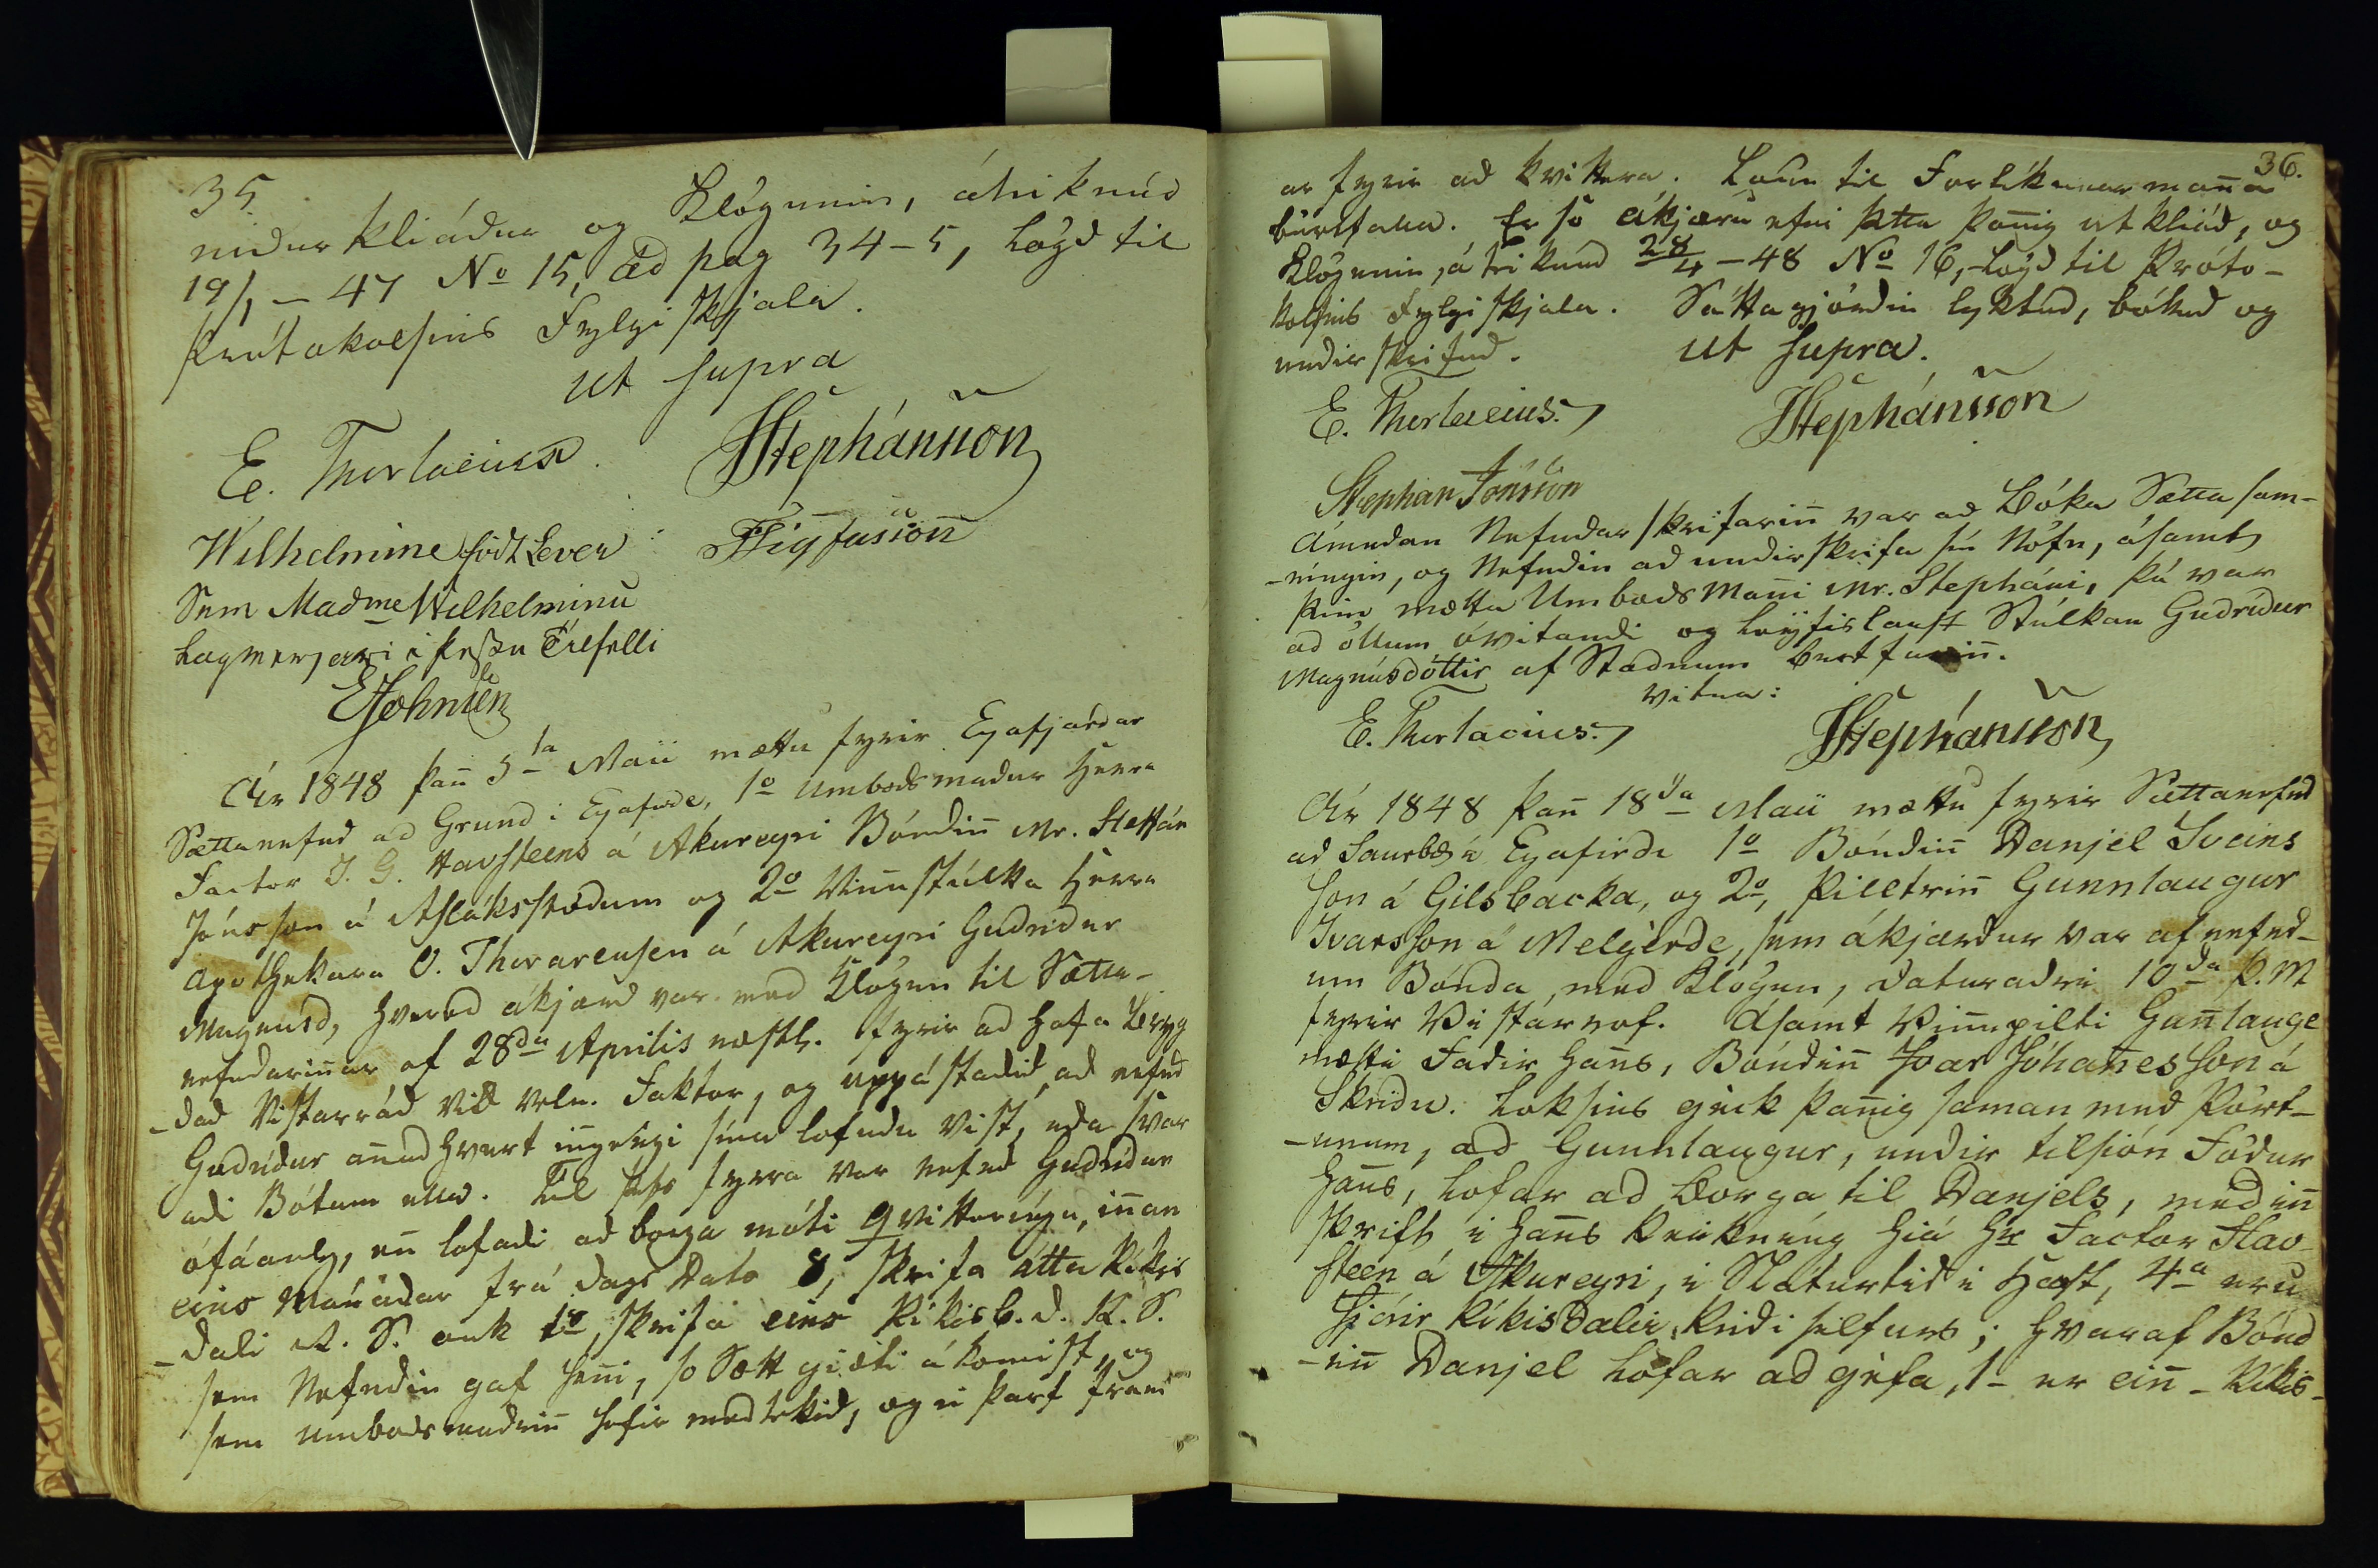 35.
niðurkliáður og Klögunin, áteiknuð
19/1 – 47 No 15, ad pag 34–5, lögð til
prótokolsins Fylgiskjala.
ut supra
E. Thorlacius.
JStephánsson
Wilhelmine födt Lever
SSigfússon
Sem Madme Wilhelminu
Lagværjari i þessu Tilfelli
EJohnsen
Ár 1848 þan̄ 5ta Maii mættu fyrir Eyafjardar
Sættanefnd ad Grund i Eyafirde, 1o Umbodsmadur Herra
Factor J. G. Havsteens á Akureyri Bóndin̄ Mr. Steffán
Jónsson á Aslákstödum og 2o Vinnustúlka Herra
Apothekara O. Thorarensen á Akureyri Gudridur
Magnúsd, hverod ákjærd var med Klögun til Sætta-
nefndarin̄ar af 28da Aprilis næstl. fyrir ad hafa brygd-
-dad Vistarrád vid veln. Faktor, og uppástadid, ad nefnd
Gudridur an̄adhvert in̄gengi sina lofudu Vist, eda svar
adi Bótum ella. Til þess fyrra var nefnd Gudridur
ófáanlg, en̄ lofadi ad borga móti Qvitteringu, in̄an
eins Mánadar frá dags Dato 8, skrifa átta Rikis
-dali R. S. auk 1s, skrifa eins Rikisb.d. R. S.
sem Nefndin gaf hen̄i, so Sætt giæti ákomist, og
sem umbodsmadurin̄ hefir medtekid, og ei þarf fram
36.
ar fyrir ad kvittera. Laun til Forlikunarman̄a
burtfalla. Er so ákjæru efni þetta þan̄ig utkliád, og
Klögunin, áteiknud 28/4 – 48 No 16, lögd til Próto-
kolsins Fylgiskjala. Sáttagjördin lyktud, bókud og
undirskrifud. ut supra.
E. Thorlacius.
JStephánsson
Stephan Jónsson
Ámedan Nefndarskrifarin̄ var ad bóka Sættasam-
-níngin, og Nefndin ad undirskrifa sin Nöfn, ásamt
þeim mætta Umbodsman̄i Mr. Stepháni, þá var
ad öllum óvitandi og leyfislaust Stúlkan Gudridur
Magnúsdóttir af Stadnum burtfarin̄.
Vitna:
E. Thorlacius.
JStephánsson
Ár 1848 þan̄ 18da Maii mættu fyrir Sættanefnd
ad Saurbæ i Eyafirde 1o Bóndin̄ Danjel Sveins
son á Gilsbacka, og 2o, Pilltrin̄ Gunnlaugur
Ivarsson á Melgerde, sem ákjærdur var af nefnd-
um Bónda, med Klögun, dateradri 10da þ.M
fyrir Vistarrof. Ásamt Vin̄upilti Gun̄lauge
mætti Fadir han̄s, Bóndin̄ Ivar Jóhan̄esson á
Skridu. Loksins gèck þan̄ig saman med Pört-
-unum, ad Gunnlaugur, undir tilsión Födur
han̄s, lofar ad borga til Danjels, med in̄
skrift i han̄s Reikníng hiá Hr Factor Hav-
steen á Akureyri, i Sláturtid i Haust, 4a eru
fjórir Rikisdalir, Reidi silfurs; hvaraf Bónd
-in̄ Danjel lofar ad gèfa, 1 – er ein̄ – Rikis-